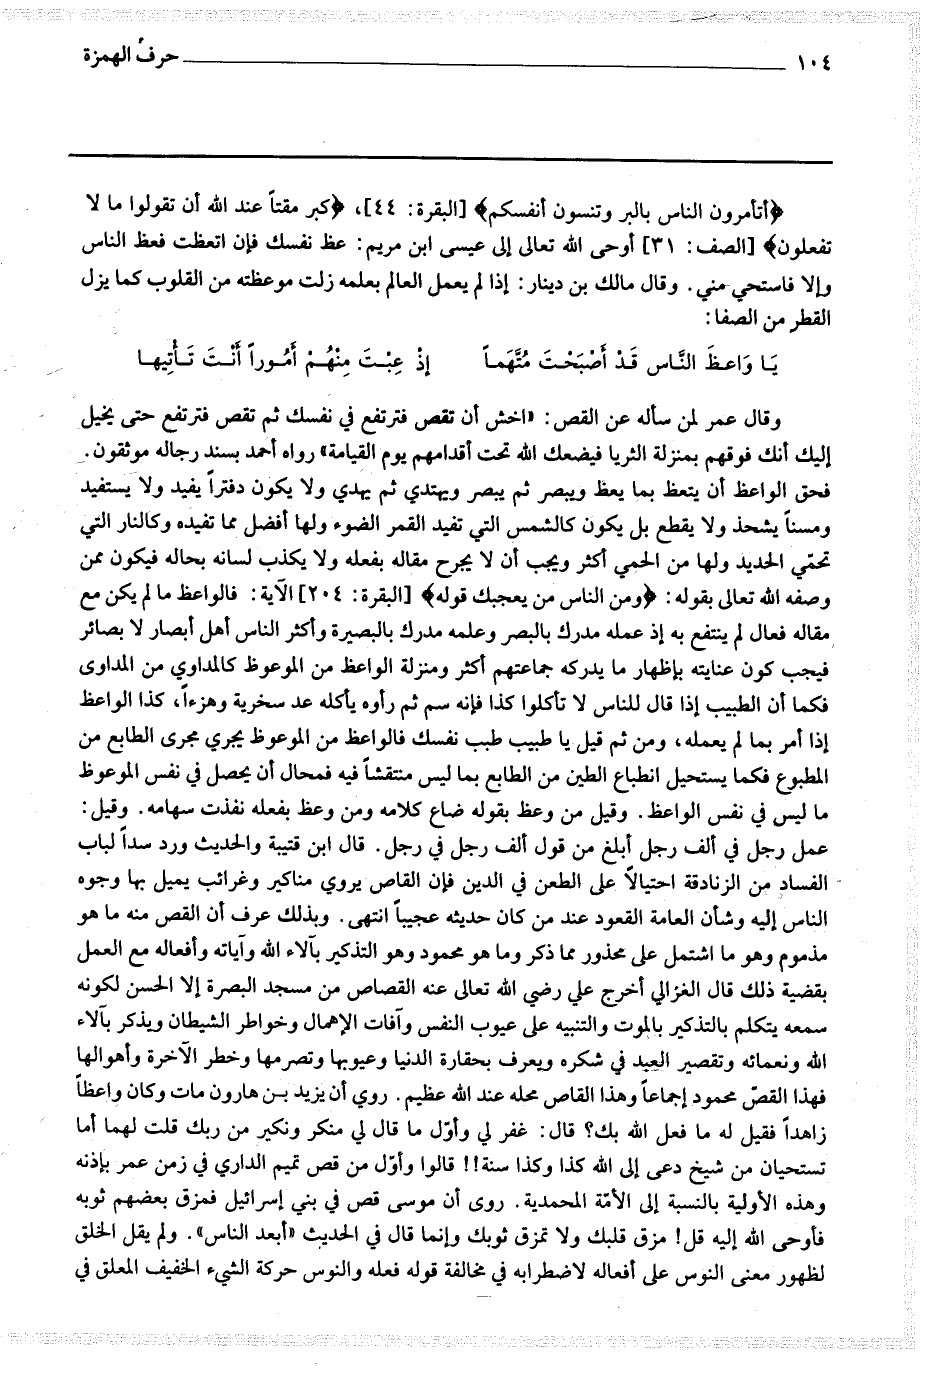 ١٠٤ حرف الهمزة
﴿أتأمرون الناس بالبر وتنسون أنفسكم﴾ [البقرة: ٤٤]، ﴿كبر مقتاً عند الله أن تقولوا ما لا
تفعلون﴾ [الصف: ٣١] أوحى الله تعالى إلى عيسى ابن مريم: عظ نفسك فإن اتعظت فعظ الناس
وإلا فاستحي مني. وقال مالك بن دينار: إذا لم يعمل العالم بعلمه زلت موعظته من القلوب كما يزل
القطر من الصفا:
يَا وَاعظَ النَّاس قَدْ أَصْبَحْتَ مُتَّهَماً إذْ عِبْتَ مِنْهُمْ أَمُوراً أَنْتَ تَأْتِيها
وقال عمر لمن سأله عن القص: «اخش أن تقص فترتفع في نفسك ثم تقص فترتفع حتى يخيل
إليك أنك فوقهم بمنزلة الثريا فيضعك الله تحت أقدامهم يوم القيامة» رواه أحمد بسند رجاله موثقون.
فحق الواعظ أن يتعظ بما يعظ ويبصر ثم يبصر ويهتدي ثم يهدي ولا يكون دفتراً يفيد ولا يستفيد
ومسناً يشحذ ولا يقطع بل يكون كالشمس التي تفيد القمر الضوء ولها أفضل مما تفيده وكالنار التي
تحمّي الحديد ولها من الحمي أكثر ويجب أن لا يجرح مقاله بفعله ولا يكذب لسانه بحاله فيكون ممن
وصفه الله تعالى بقوله: ﴿ومن الناس من يعجبك قوله﴾ [البقرة: ٢٠٤] الآية: فالواعظ ما لم يكن مع
مقاله فعال لم ينتفع به إذ عمله مدرك بالبصر وعلمه مدرك بالبصيرة وأكثر الناس أهل أبصار لا بصائر
فيجب كون عنايته بإظهار ما يدركه جماعتهم أكثر ومنزلة الواعظ من الموعوظ كالمداوي من المداوى
فكما أن الطبيب إذا قال للناس لا تأكلوا كذا فإنه سم ثم رأوه يأكله عد سخرية وهزءاً، كذا الواعظ
إذا أمر بما لم يعمله، ومن ثم قيل يا طبيب طبب نفسك فالواعظ من الموعوظ يجري مجرى الطابع من
المطبوع فكما يستحيل انطباع الطين من الطابع بما ليس منتقشاً فيه فمحال أن يحصل في نفس الموعوظ
ما ليس في نفس الواعظ. وقيل من وعظ بقوله ضاع كلامه ومن وعظ بفعله نفذت سهامه. وقيل:
عمل رجل في ألف رجل أبلغ من قول ألف رجل في رجل. قال ابن قتيبة والحديث ورد سداً لباب
الفساد من الزنادقة احتيالاً على الطعن في الدين فإن القاص يروي مناكير وغرائب يميل بها وجوه
الناس إليه وشأن العامة القعود عند من كان حديثه عجيباً انتهى. وبذلك عرف أن القص منه ما هو
مذموم وهو ما اشتمل على محذور مما ذكر وما هو محمود وهو التذكير بآلاء الله وآياته وأفعاله مع العمل
بقضية ذلك قال الغزالي أخرج علي رضي الله تعالى عنه القصاص من مسجد البصرة إلا الحسن لكونه
سمعه يتكلم بالتذكير بالموت والتنبيه على عيوب النفس وآفات الإهمال وخواطر الشيطان ويذكر بآلاء
الله ونعمائه وتقصير العبد في شكره ويعرف بحقارة الدنيا وعيوبها وتصرمها وخطر الآخرة وأهوالها
فهذا القصّ محمود إجماعاً وهذا القاص محله عند الله عظيم. روي أن يزيد بن هارون مات وكان واعظاً
زاهداً فقيل له ما فعل الله بك؟ قال: غفر لي وأوّل ما قال لي منكر ونكير من ربك قلت لهما أما
تستحيان من شيخ دعى إلى الله كذا وكذا سنة!! قالوا وأوّل من قص تميم الداري في زمن عمر بإذنه
وهذه الأولية بالنسبة إلى الأمّة المحمدية. روى أن موسى قص في بني إسرائيل فمزق بعضهم ثوبه
فأوحى الله إليه قل! مزق قلبك ولا تمزق ثوبك وإنما قال في الحديث «أبعد الناس». ولم يقل الخلق
لظهور معنى النوس على أفعاله لاضطرابه في مخالفة قوله فعله والنوس حركة الشيء الخفيف المعلق في